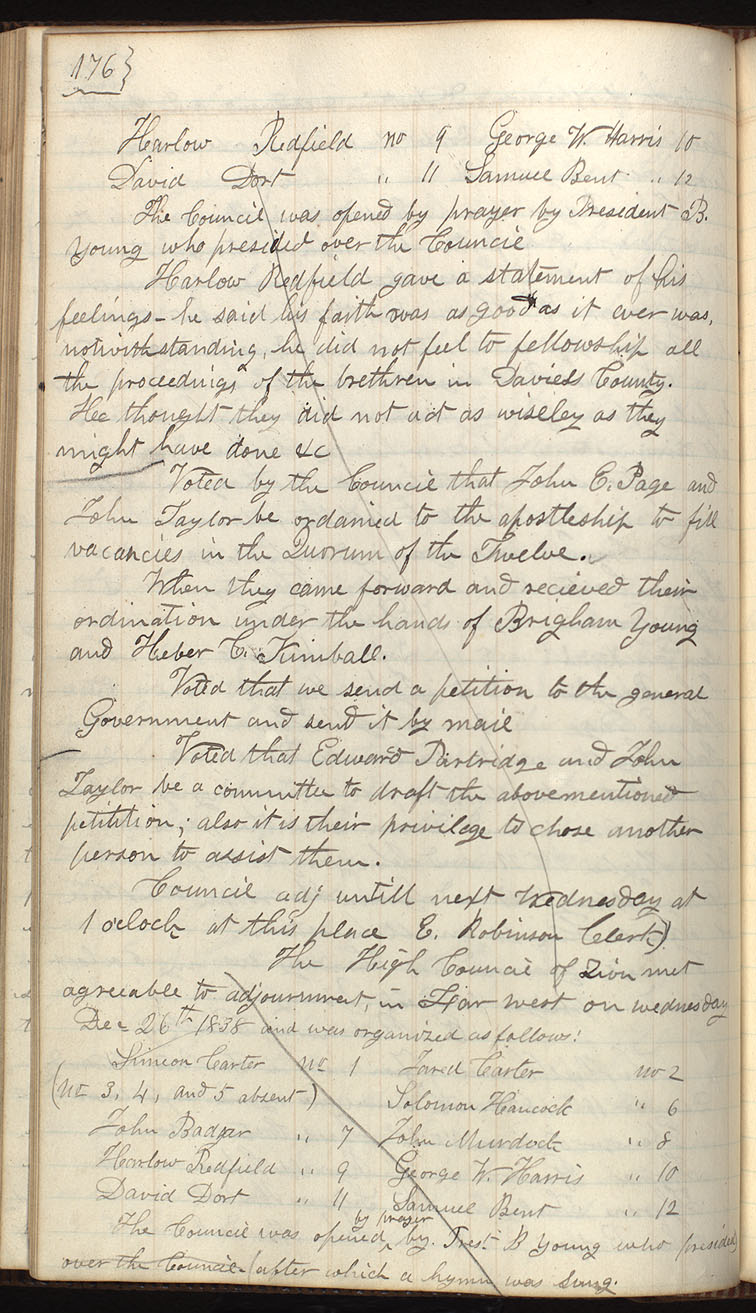 176}
Harlow Redfield no 9 George W. Harris 10
David Dort " 11 Samuel Bent " 12
The Council was opened by prayer by President B.
Young who presided over the Council
Harlow Redfield gave a statement of his
feelings - he said his faith was as good as it ever was,
notwithstanding, he did not feel to fellowship all
the proceedings of the brethren in Daviess County.
He thought they did not act as wiseley as they
might have done &c
Voted by the Council that John E. Page and
John Taylor be ordained to the apostleship to fill
vacancies in the Quorum of the Twelve.
When they came forward and recieved their
ordination under the hands of Brigham Young
and Heber C. Kimball.
Voted that we send a petition to the general
Government and send it by mail
Voted that Edward Partridge and John
Taylor be a committee to draft the abovementioned
petitition; also it is their privilege to chose another
person to assist them.
Council adj untill next Wednesday at
1 oclock at this place E. Robinson Clerk)
The High Council of Zion met
agreeable to adjournment, in Far west on wednesday
Dec 26th 1838 and was organized as follows:
Simeon Carter no 1 Jared Carter no 2
(No 3, 4, and 5 absent) Solomon Hancock " 6
John Badger " 7 John Murdock " 8
Harlow Redfield " 9 George W. Harris " 10
David Dort " 11 Samuel Bent " 12
The Council was opened by prayer by. Prest B Young who presided
over the Council (after which a hymn was sung.